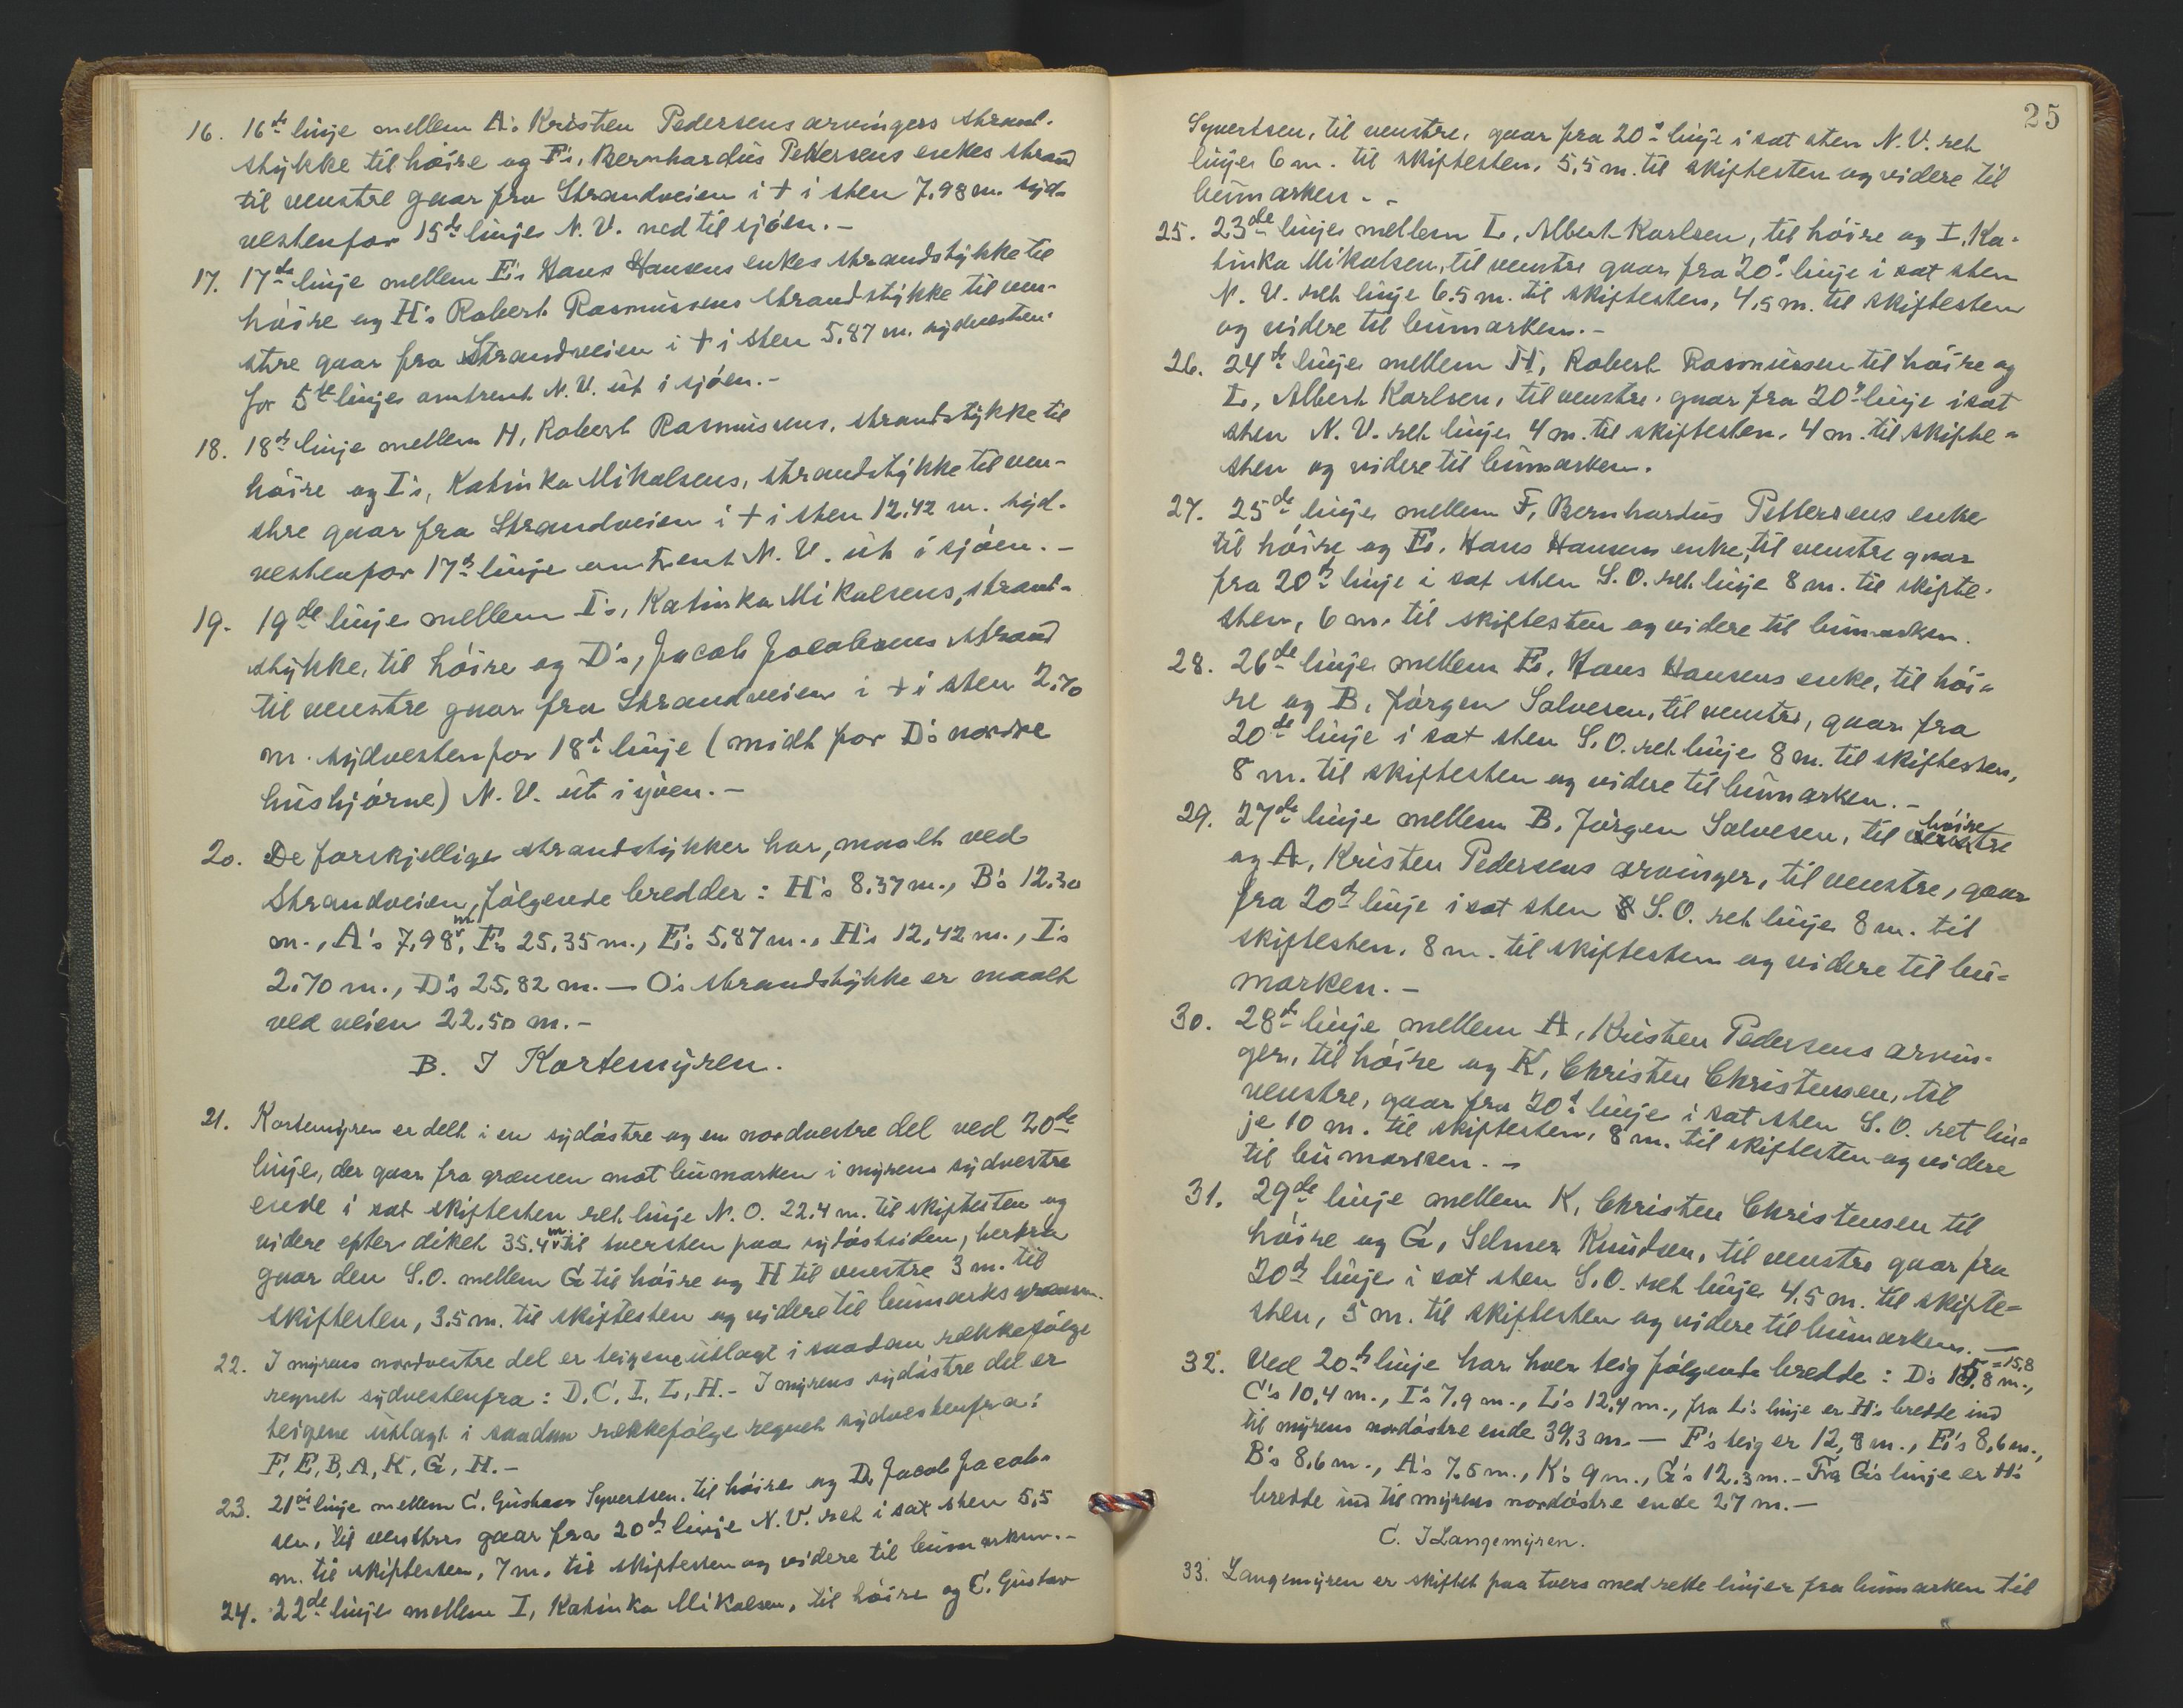 16. 16de linje mellem A's Kristen Pedersens arvingers strand-
stykke til höire og F's, Bernhardus Pettersens enkes strand
til venstre gaar fra Strandveien i + i sten 7,98 m. syd-
vestenfor 15de linje N. V. ned til sjöen.-
17. 17de linje mellem E's Hans Hansens enkes strandstykke til
höire og H's Robert Rasmussens strandstykke til ven-
stre gaar fra Strandveien i + i sten 5,87 m. sydvesten-
for 5te linje omtrent N. V. ut i sjöen.-
18. 18de linje mellem H, Robert Rasmussens, strandstykke til
höire og I's, Katinka Mikalsens, strandstykke til ven-
stre gaar fra Strandveien i + i sten 12,42 m. syd-
vestenfor 17de linje omtrent N. V. ut i sjöen.-
19. 19de linje mellem I's, Katinka Mikalsens, strand-
stykke, til höire og D's, Jacob Jacobsens strand
til venstre gaar fra Strandveien i + i sten 2,70
m. sydvestenfor 18de linje (midt for D's nordre
hushjörne) N. V. ut i sjöen.-
20. De forskjellige strandstykker har, maalt ved
Strandveien, fölgende bredder: H's 8,37 m., B's 12,30
m., A's 7,98 m, F's 25,35 m., E's 5,87 m., H's 12,42 m., I's
2,70 m., D's 25,82 m. — O's strandstykke er maalt
ved veien 22,50 m.-
B. I Kortemyren.
21. Kortemyren er delt i en sydöstre og en nordvestre del ved 20de
linje, der gaar fra grænsen mot bumarken i myrens sydvestre
ende i sat skiftesten ret linje N. O. 22,4 m. til skiftesten og
videre efter diket 35,4 m. til tversten paa sydöstsiden, herfra
gaar den S.O. mellem G til höire og H til venstre 3 m. til
skiftesten, 3,5 m. til skiftesten og videre til bumarksgrænsen.
22. I myrens nordvestre del er teigene utlagt i saadan rækkefölge
regnet sydvestenfra: D, C, I, L, H.- I myrens sydöstre del er
teigene utlagt i saadan rækkefölge regnet sydvestenfra:
F, E, B, A, K, G, H.-
23. 21de linje mellem C, Gustav Syvertsen, til höire og D, Jacob Jacob-
sen, til venstre gaar fra 20de linje N. V. ret i sat sten 5,5
m. til skiftesten, 7 m. til skiftesten og videre til bumarken.-
24. 22de linje mellem I, Katinka Mikalsen, til höire og C, Gustav
25
Syvertsen, til venstre, gaar fra 20de linje i sat sten N. V. ret
linje 6 m. til skiftesten, 5,5 m. til skiftesten og videre til
bumarken.-
25. 23de linje mellem L, Albert Karlsen, til höire og I, Ka-
tinka Mikalsen, til venstre gaar fra 20de linje i sat sten
N. V. ret linje 6,5 m. til skiftesten, 4,5 m. til skiftesten
og videre til bumarken.-
26. 24de linje mellem H, Robert Rasmussen til höire og
L, Albert Karlsen, til venstre, gaar fra 20de linje i sat
sten N. V. ret linje 4 m. til skiftesten, 4 m. til skifte-
sten og videre til bumarken.
27. 25de linje mellem F, Bernhardus Pettersens enke
til höire og E, Hans Hansens enke, til venstre gaar
fra 20de linje i sat sten S. O. ret linje 8 m. til skifte-
sten, 6 m. til skiftesten og videre til bumarken.
28. 26de linje mellem E, Hans Hansens enke, til höi-
re og B, Jörgen Salvesen, til venstre, gaar fra
20de linje i sat sten S. O. ret linje 8 m. til skiftesten,
8 m. til skiftesten og videre til bumarken.-
29. 27de linje mellem B, Jörgen Salvesen, til venstre höire
og A, Kristen Pedersens arvinger, til venstre, gaar
fra 20de linje i sat sten S. O. ret linje 8 m. til
skiftesten, 8 m. til skiftesten og videre til bu-
marken.-
30. 28de linje mellem A, Kristen Pedersens arvin-
ger, til höire og K, Christen Christensen, til
venstre, gaar fra 20de linje i sat sten S. O. ret lin-
je 10 m. til skiftesten, 8 m. til skiftesten og videre
til bumarken.-
31. 29de linje mellem K, Christen Christensen til
höire og G, Selmer Knudsen, til venstre gaar fra
20de linje i sat sten S. O. ret linje 4,5 m. til skifte-
sten, 5 m. til skiftesten og videre til bumarken.—
32. Ved 20de linje har hver teig fölgende bredde: D's 15,8 m., =15,8
C's 10,4 m., I's 7,9 m., L's 12,4 m., fra L's linje er H's bredde ind
til myrens nordöstre ende 39,3 m. — F's teig er 12,8 m., E's 8,6 m.,
B's 8,6 m., A's 7,5 m., K's 9 m., G's 12,3 m.- Fra G's linje er H's
bredde ind til myrens nordöstre ende 27 m.—
C. I Langemyren.
33. Langemyren er skiftet paa tvers med rette linjer fra bumarken til